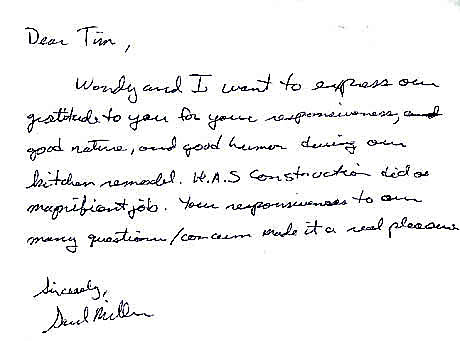 Dear Tim,
Wendy and I want to express our
gratitude to you for your responsiveness, and
good nature, and good humor during our
kitchen remodel. W.A.S Construction did a
magnificant job. Your responsiveness to our
many questions/concerns made it a real pleasure
Sincerely,